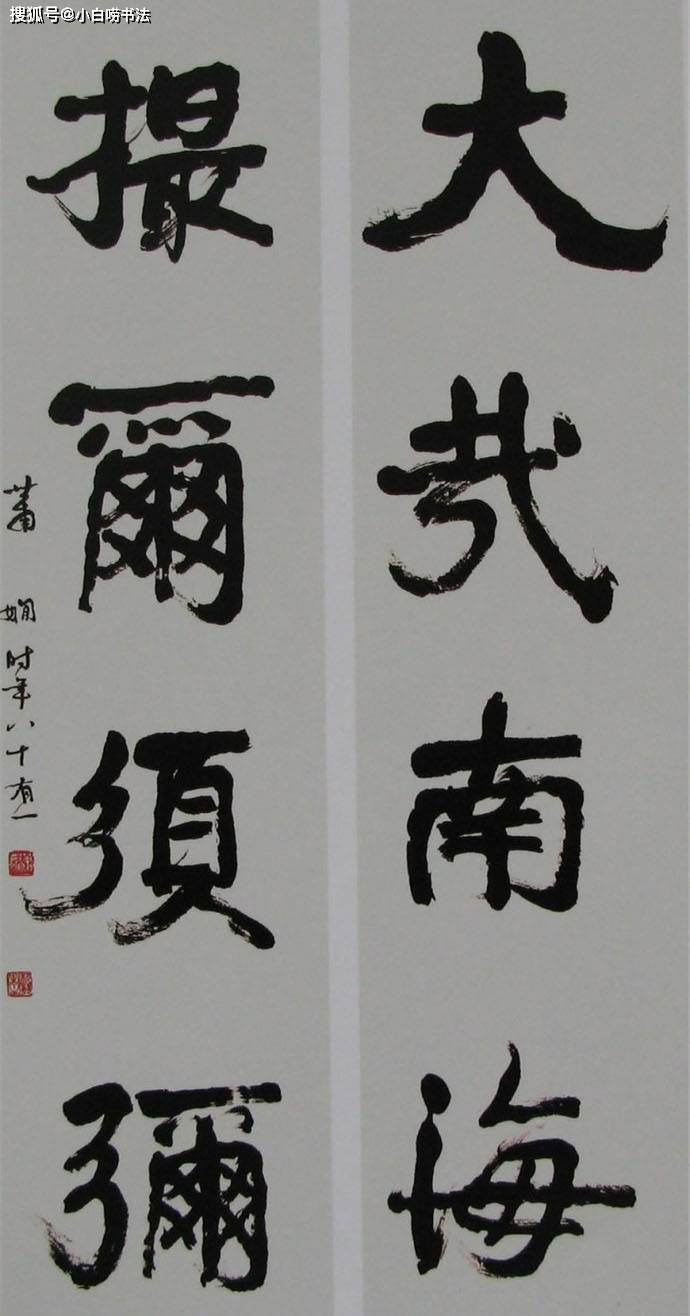 搜狐号@小白唠书法
大哉南海
撮爾須彌
蕭嫻时年八十有一